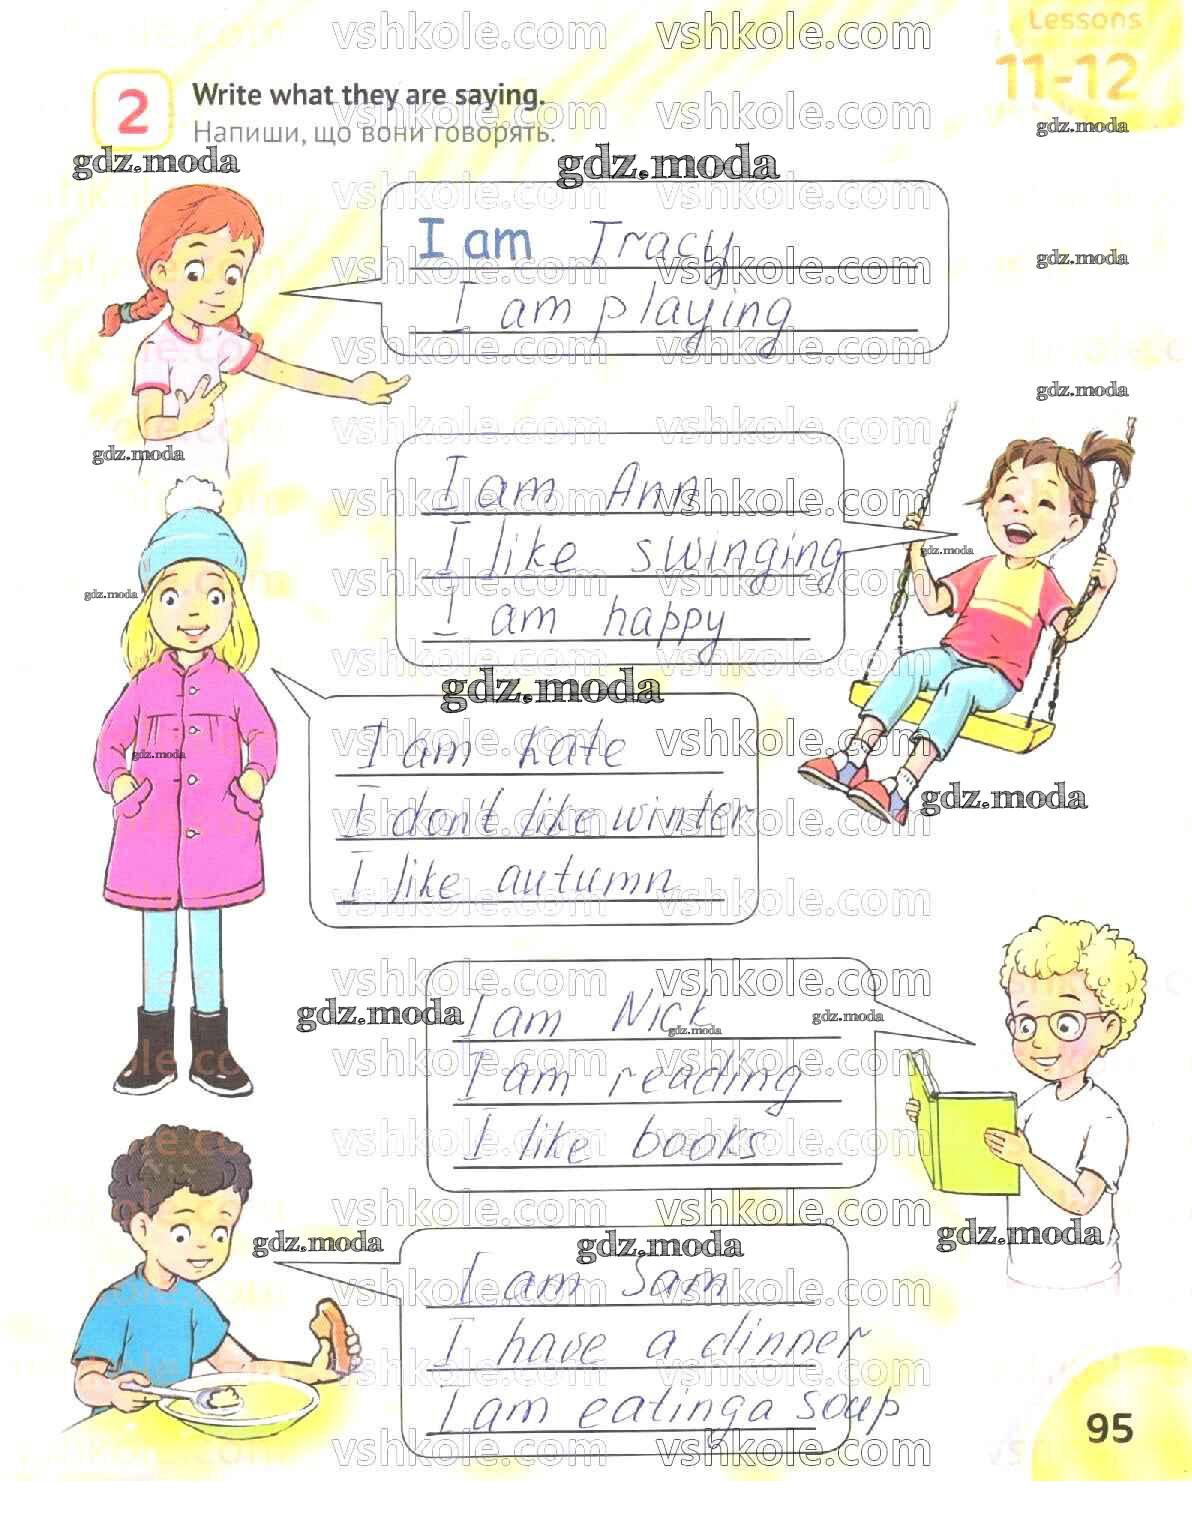 Lessons
11-12
2
Write what they are saying.
Напиши, що вони говорять.
I am Tracy
I am playing
I am Ann
I like swinging
I am happy
I am Kate
I don't like winter
I like autumn
I am Nick
I am reading
I like books
I am Sam
I have a dinner
I am eating a soup
95
vshkole.com
gdz.moda